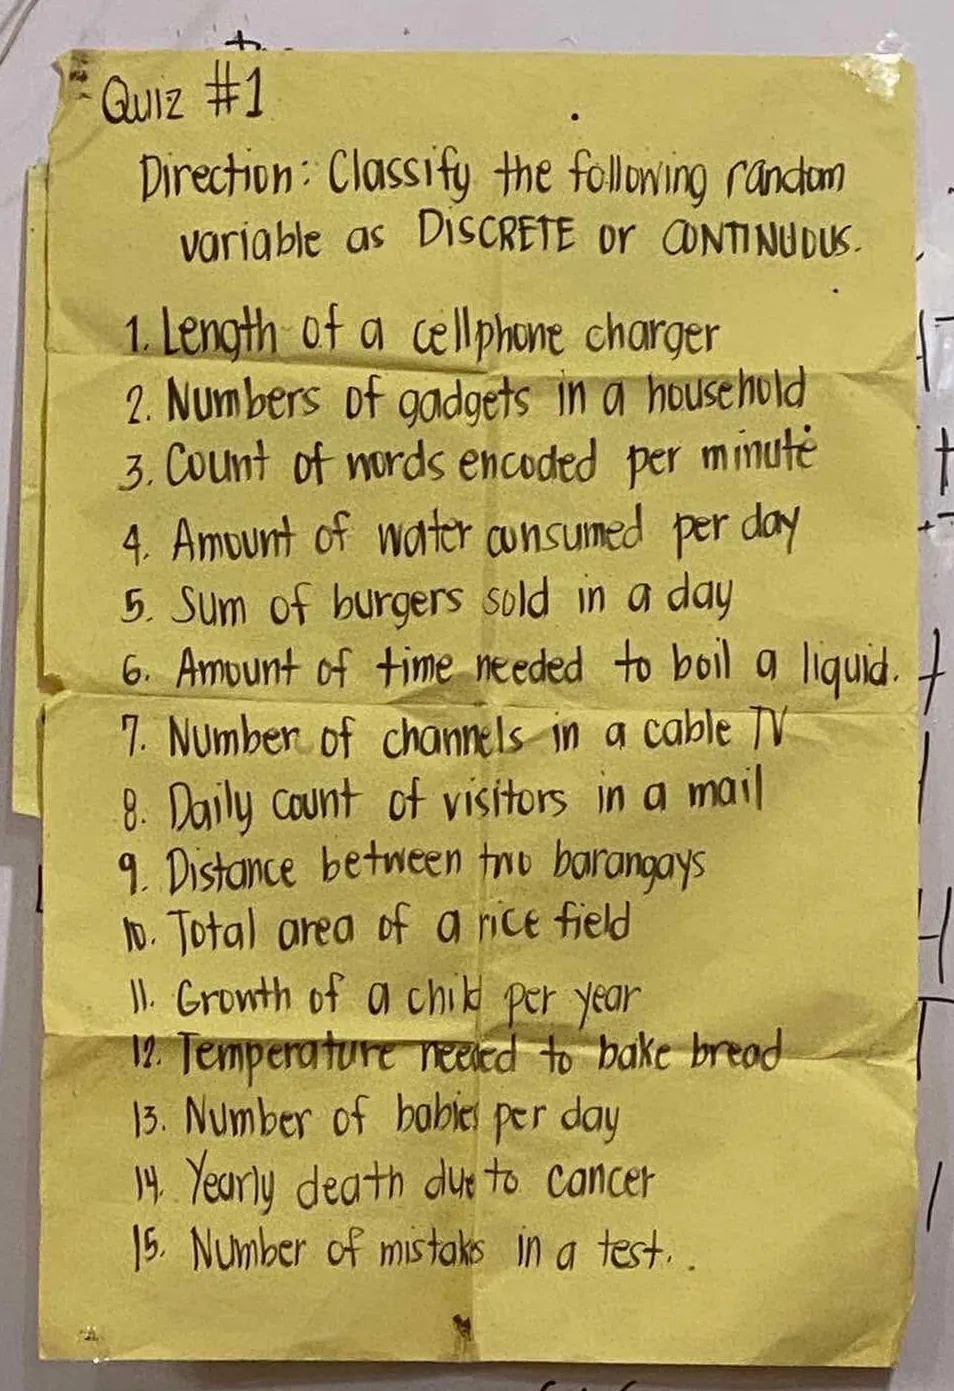 Quiz #1
Direction: Classify the following random
variable as DISCRETE or CONTINUOUS.
1. Length of a cellphone charger
2. Numbers of gadgets in a household
3. Count of words encoded per minute
4. Amount of water consumed per day
5. Sum of burgers sold in a day
6. Amount of time needed to boil a liquid.
7. Number of channels in a cable TV
8. Daily count of visitors in a mail
9. Distance between two barangays
10. Total area of a rice field
11. Growth of a child per year
12. Temperature needed to bake bread
13. Number of babies per day
14. Yearly death due to cancer
15. Number of mistaks in a test..